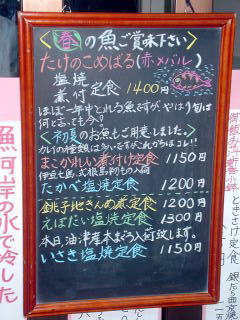 <春>の魚ご賞味下さい
たけのこめばる(赤・メバル)
塩焼
煮付定食 1400円
ほぼ一年中とれる魚ですが やはり旬は
何と言っても今?
<初夏>のお魚もご用意しました。
カレイの種類は多いですがこれからはコレ!!
まこがれい煮付け定食 1150円
伊豆七島、式根島朝もの入荷
たかべ塩焼定食 1200円
銚子地きんめ煮定食 1200円
えぼだい塩焼定食 1300円
本日 油津産本まぐろ入荷致します。
いさき塩焼定食 1150円
魚河岸の水で冷した